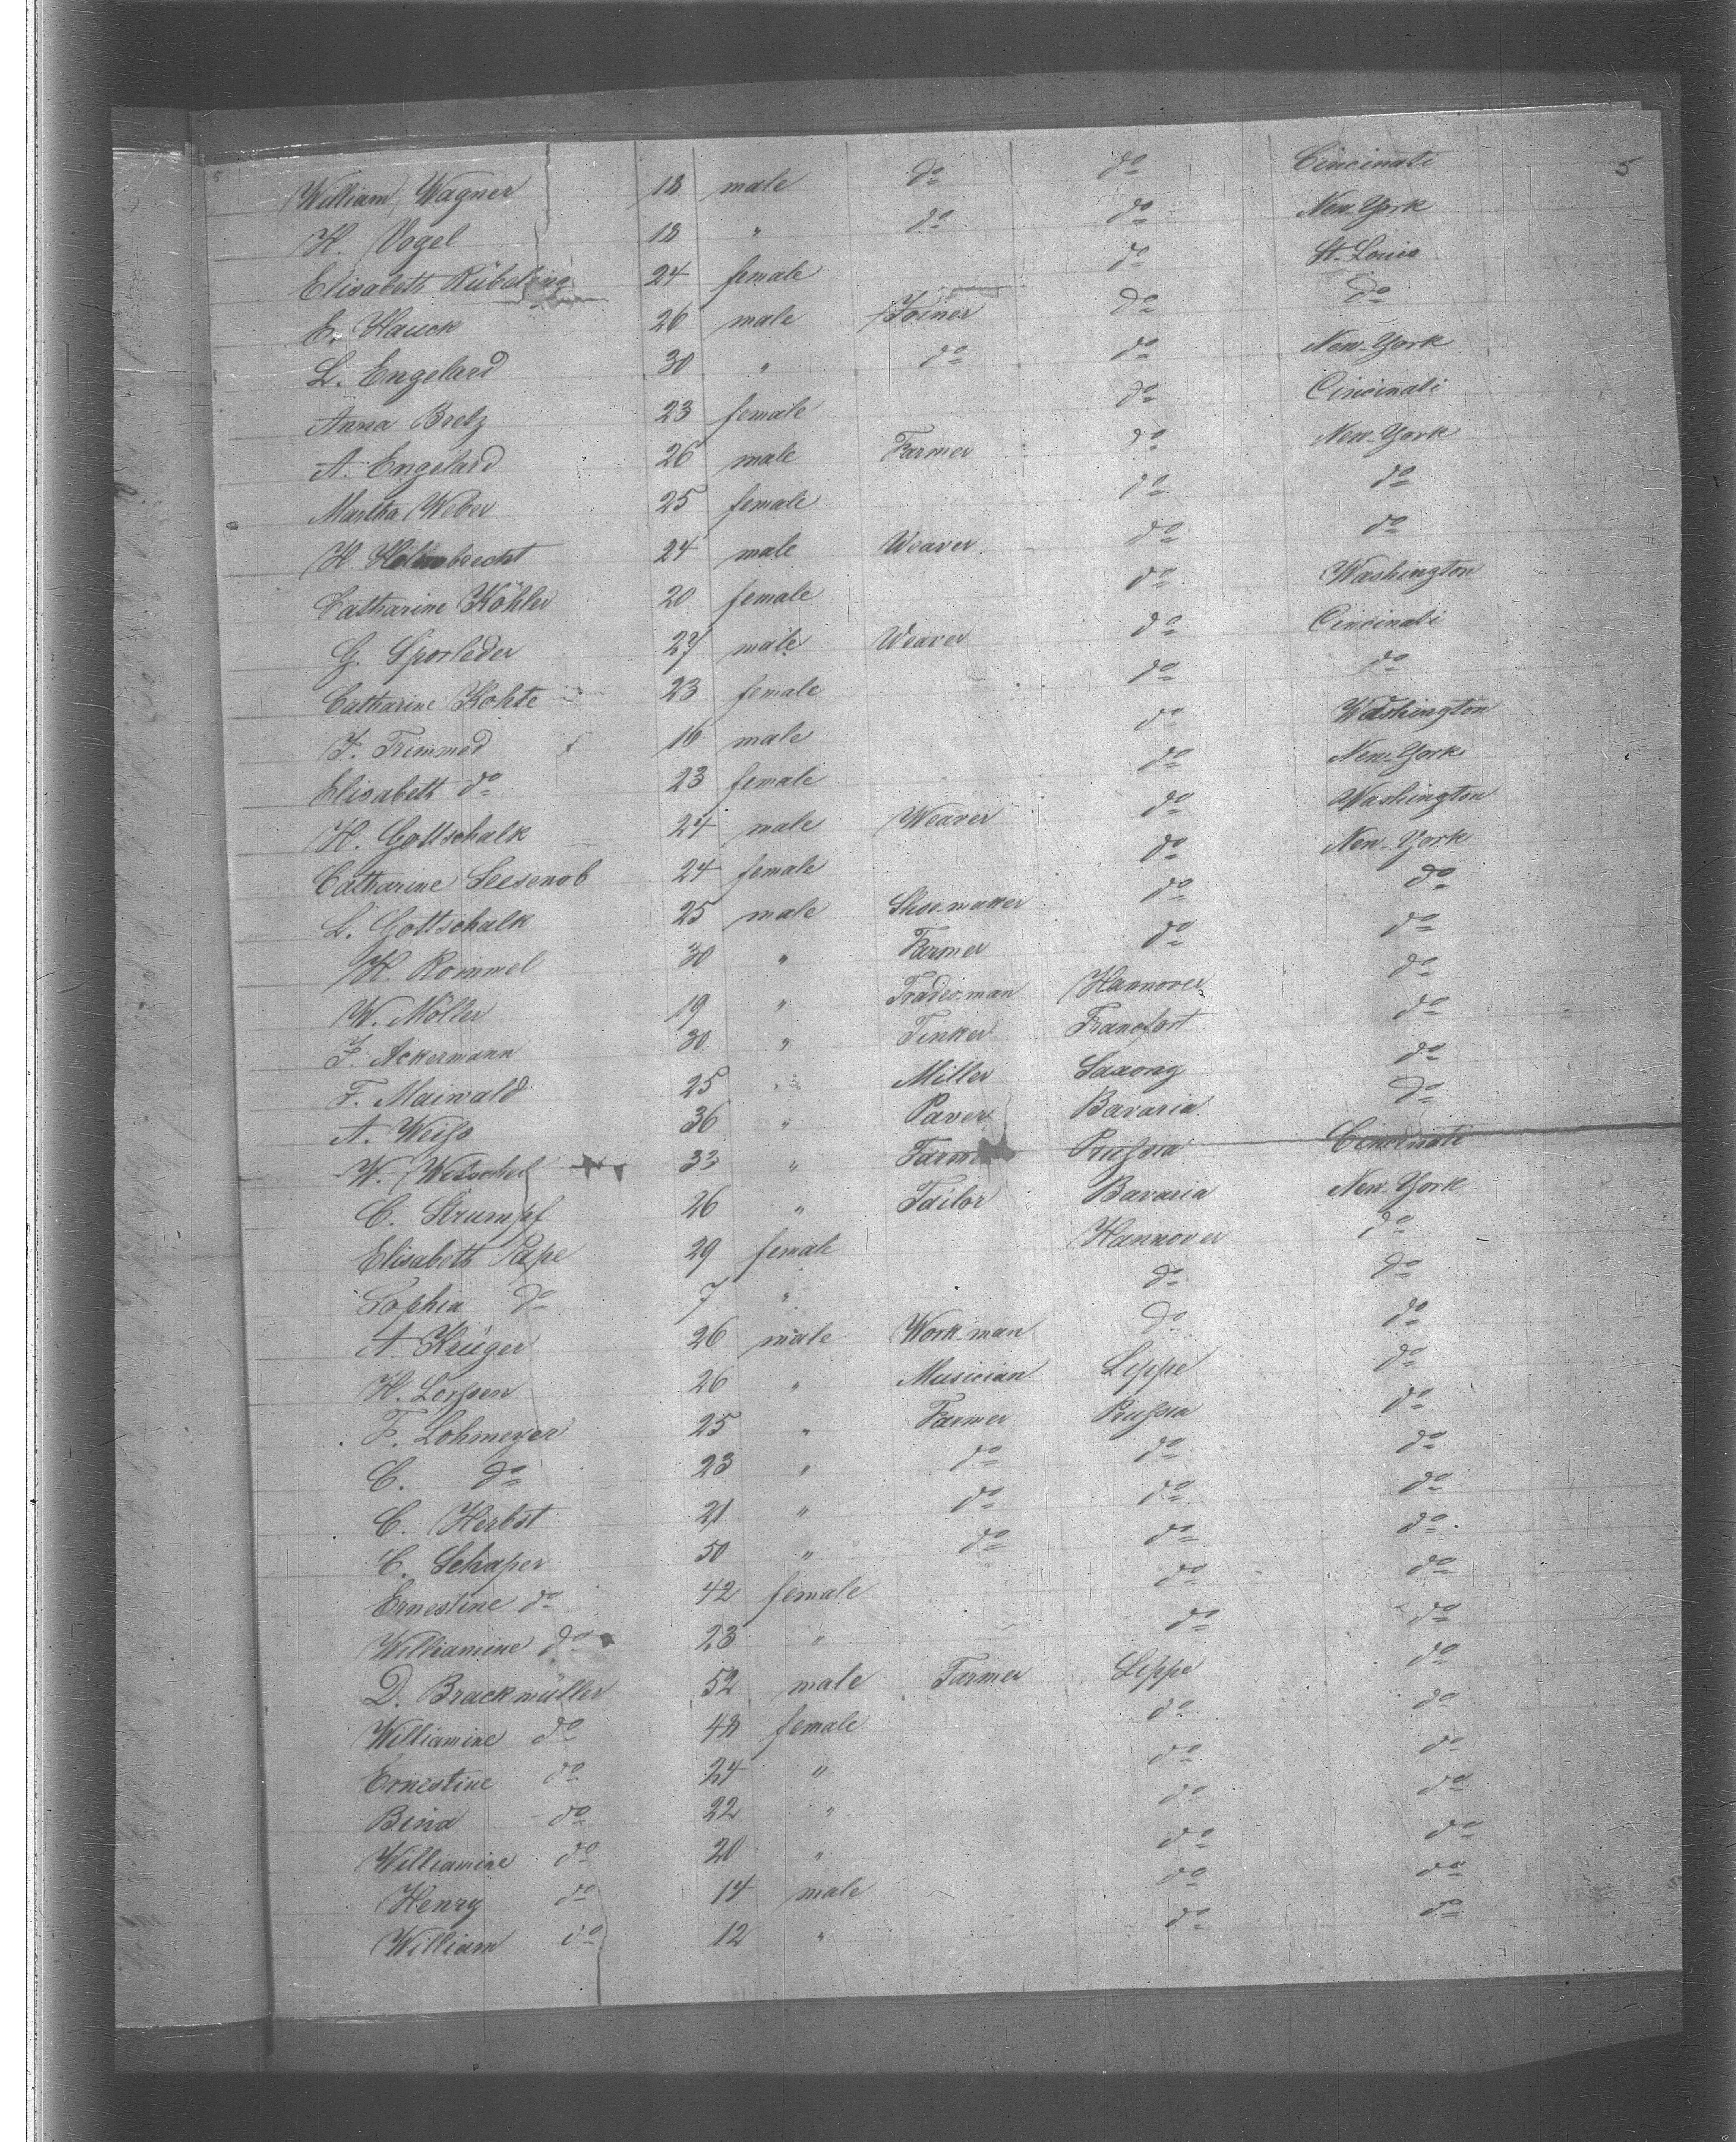 5
William Wagner 18 male do do Cincinati
H. Vogel 18 " do do New-York
Elisabeth Rübeling 24 female do St. Louis
E. Hauck 26 male Joiner do do
L. Engelard 30 " do do New-York
Anna Bretz 23 female do Cincinati
A. Engelard 26 male Farmer do New-York
Martha Weber 25 female do do
H. 24 male Weaver do do
Catharine Köhler 20 female do Washington
G. Sporleder 27 male Weaver do Cincinati
Catharine Kohte 23 female do do
F. Trimmed 16 male do Washington
Elisabeth do 23 female do New-York
H. Gottschalk 24 male Weaver do Washington
Catharine 24 female do New-York
L. Gottschalk 25 male Shoe-maker do do
H. Rommel 30 " Farmer do do
W. Möller 19 " Trades-man Hannover do
F. Ackermann 30 " Tinker Francfort do
F. Maiwald 25 " Miller Saxony do
A. Weiſs 36 " Paver Bavaria do
W. Wetschel 33 " Farmer Pruſsia Cincinati
C. Strumpf 26 " Tailor Bavaria New-York
Elisabeth Pape 29 female Hannover do
Sophia do 7 " do do
A. Krüger 26 male Work-man do do
H. 26 " Musician Lippe do
F. Lohmeyer 25 " Farmer Pruſsia do
C. do 23 " do do do
C. Herbst 21 " do do do
C. Schaper 50 " do do do
Ernestine do 42 female do do
Williamine do 23 " do do
D. Brackmüller 52 male Farmer Lippe do
Williamine do 48 female do do
Ernestine do 24 " do do
Bina do 22 " do do
Williamine do 20 " do do
Henry do 14 male do do
William do 12 " do do